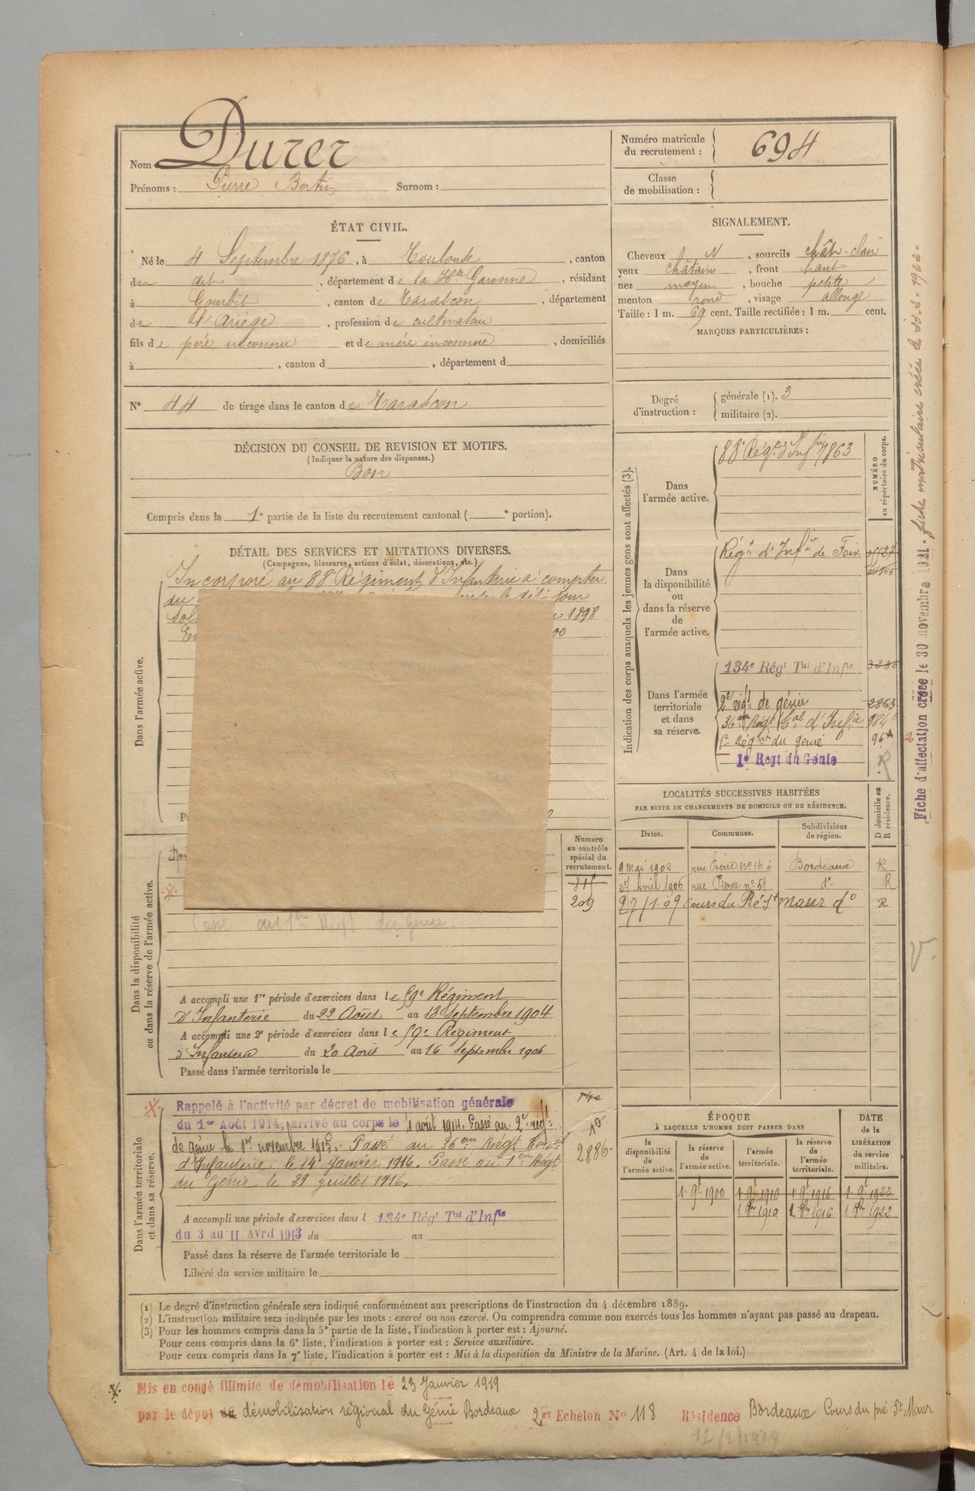 Nom Durer
Prénoms : Pierre Bertin Surnom :
Numéro matricule du recrutement : 694
Classe de mobilisation :
ÉTAT CIVIL.
Né le 4 Septembre 1876, à Toulouse, canton
du dit, département de la Hte Garonne, résidant
à Gourbit, canton de Tarascon, département
de l'Ariège, profession de cultivateur
fils de père inconnu et de mère inconnue, domiciliés
à , canton d , département d
N° 44 de tirage dans le canton de Tarascon
SIGNALEMENT.
Cheveux N, sourcils chât-clair
yeux châtain, front haut
nez moyen, bouche petite
menton rond, visage allongé
Taille : 1 m. 69 cent. Taille rectifiée : 1 m. cent.
MARQUES PARTICULIÈRES :
Degré d'instruction : générale (1). 3
militaire (2).
DÉCISION DU CONSEIL DE REVISION ET MOTIFS.
(Indiquer la nature des dispenses.)
Bon
Compris dans la 1e partie de la liste du recrutement cantonal ( e portion).
DÉTAIL DES SERVICES ET MUTATIONS DIVERSES.
(Campagnes, blessures, actions d'éclat, décorations, etc.)
Dans l'armée active.
Incorporé au 88e Régiment d'Infanterie à compter
du
le dit jour
1898
Indication des corps auxquels les jeunes gens sont affectés (3).
NUMÉRO au répertoire du corps.
Dans l'armée active.
88e Régt d'Infie 7863
Dans la disponibilité ou dans la réserve de l'armée active.
Régt d'Infie de Foix
Dans l'armée territoriale et dans sa réserve.
134e Régt Tal d'Infie
2e régt de génie 2863
36me Régt Cal d'Infie
1er Régnt du génie
1e Regt du Génie
R
LOCALITÉS SUCCESSIVES HABITÉES
PAR SUITE DE CHANGEMENTS DE DOMICILE OU DE RÉSIDENCE.
D domicile ou R résidence.
Dates. Communes. Subdivisions de région.
9 mai 1902 rue n° 16 à Bordeaux R
avril 1906 rue n° 51 do R
27/1 09 Cours du Pré St maur do R
Numéro au contrôle spécial du recrutement.
209
Dans la disponibilité ou dans la réserve de l'armée active.
Passé au 1er Régt du Genie
A accompli une 1re période d'exercices dans le 59e Régiment
d'Infanterie du 22 Août au 18 Septembre 1904
A accompli une 2e période d'exercices dans le 59e Régiment
d'Infanterie du 20 Août au 16 Septembre 1906
Passé dans l'armée territoriale le
Dans l'armée territoriale et dans sa réserve.
Rappelé à l'activité par décret de mobilisation générale
du 1er Août 1914, arrivé au corps le 4 août 1914. Passé au 2e régt
de génie le 1er novembre 1915. Passé au 36me Régt
d'Infanterie le 14 janvier 1916. Passé au 1er Régt
du Génie le 29 juillet 1916.
2886
A accompli une période d'exercices dans l 134e Régt Tal d'Infie
du 3 au 11 Avril 1913 du au
Passé dans la réserve de l'armée territoriale le
Libéré du service militaire le
ÉPOQUE
À LAQUELLE L'HOMME DOIT PASSER DANS
DATE de la LIBÉRATION du service militaire.
la disponibilité de l'armée active. la réserve de l'armée active. l'armée territoriale. la réserve de l'armée territoriale.
1 9e 1900 1 9e 1910 1 9e 1916 1 9e 1922
1 8bre 1910 1 8bre 1916 1 8bre 1922
(1) Le degré d'instruction générale sera indiqué conformément aux prescriptions de l'instruction du 4 décembre 1889.
(2) L'instruction militaire sera indiquée par les mots : exercé ou non exercé. On comprendra comme non exercés tous les hommes n'ayant pas passé au drapeau.
(3) Pour les hommes compris dans la 5e partie de la liste, l'indication à porter est : Ajourné.
Pour ceux compris dans la 6e liste, l'indication à porter est : Service auxiliaire.
Pour ceux compris dans la 7e liste, l'indication à porter est : Mis à la disposition du Ministre de la Marine. (Art. 4 de la loi.)
Mis en congé illimité de démobilisation le 23 Janvier 1919
par le dépôt de démobilisation régional du Génie Bordeaux 2er Echelon N° 118 Résidence Bordeaux Cours du pré St Maur
Fiche d'affectation créée le 30 novembre 1921. fiche matriculaire créée le